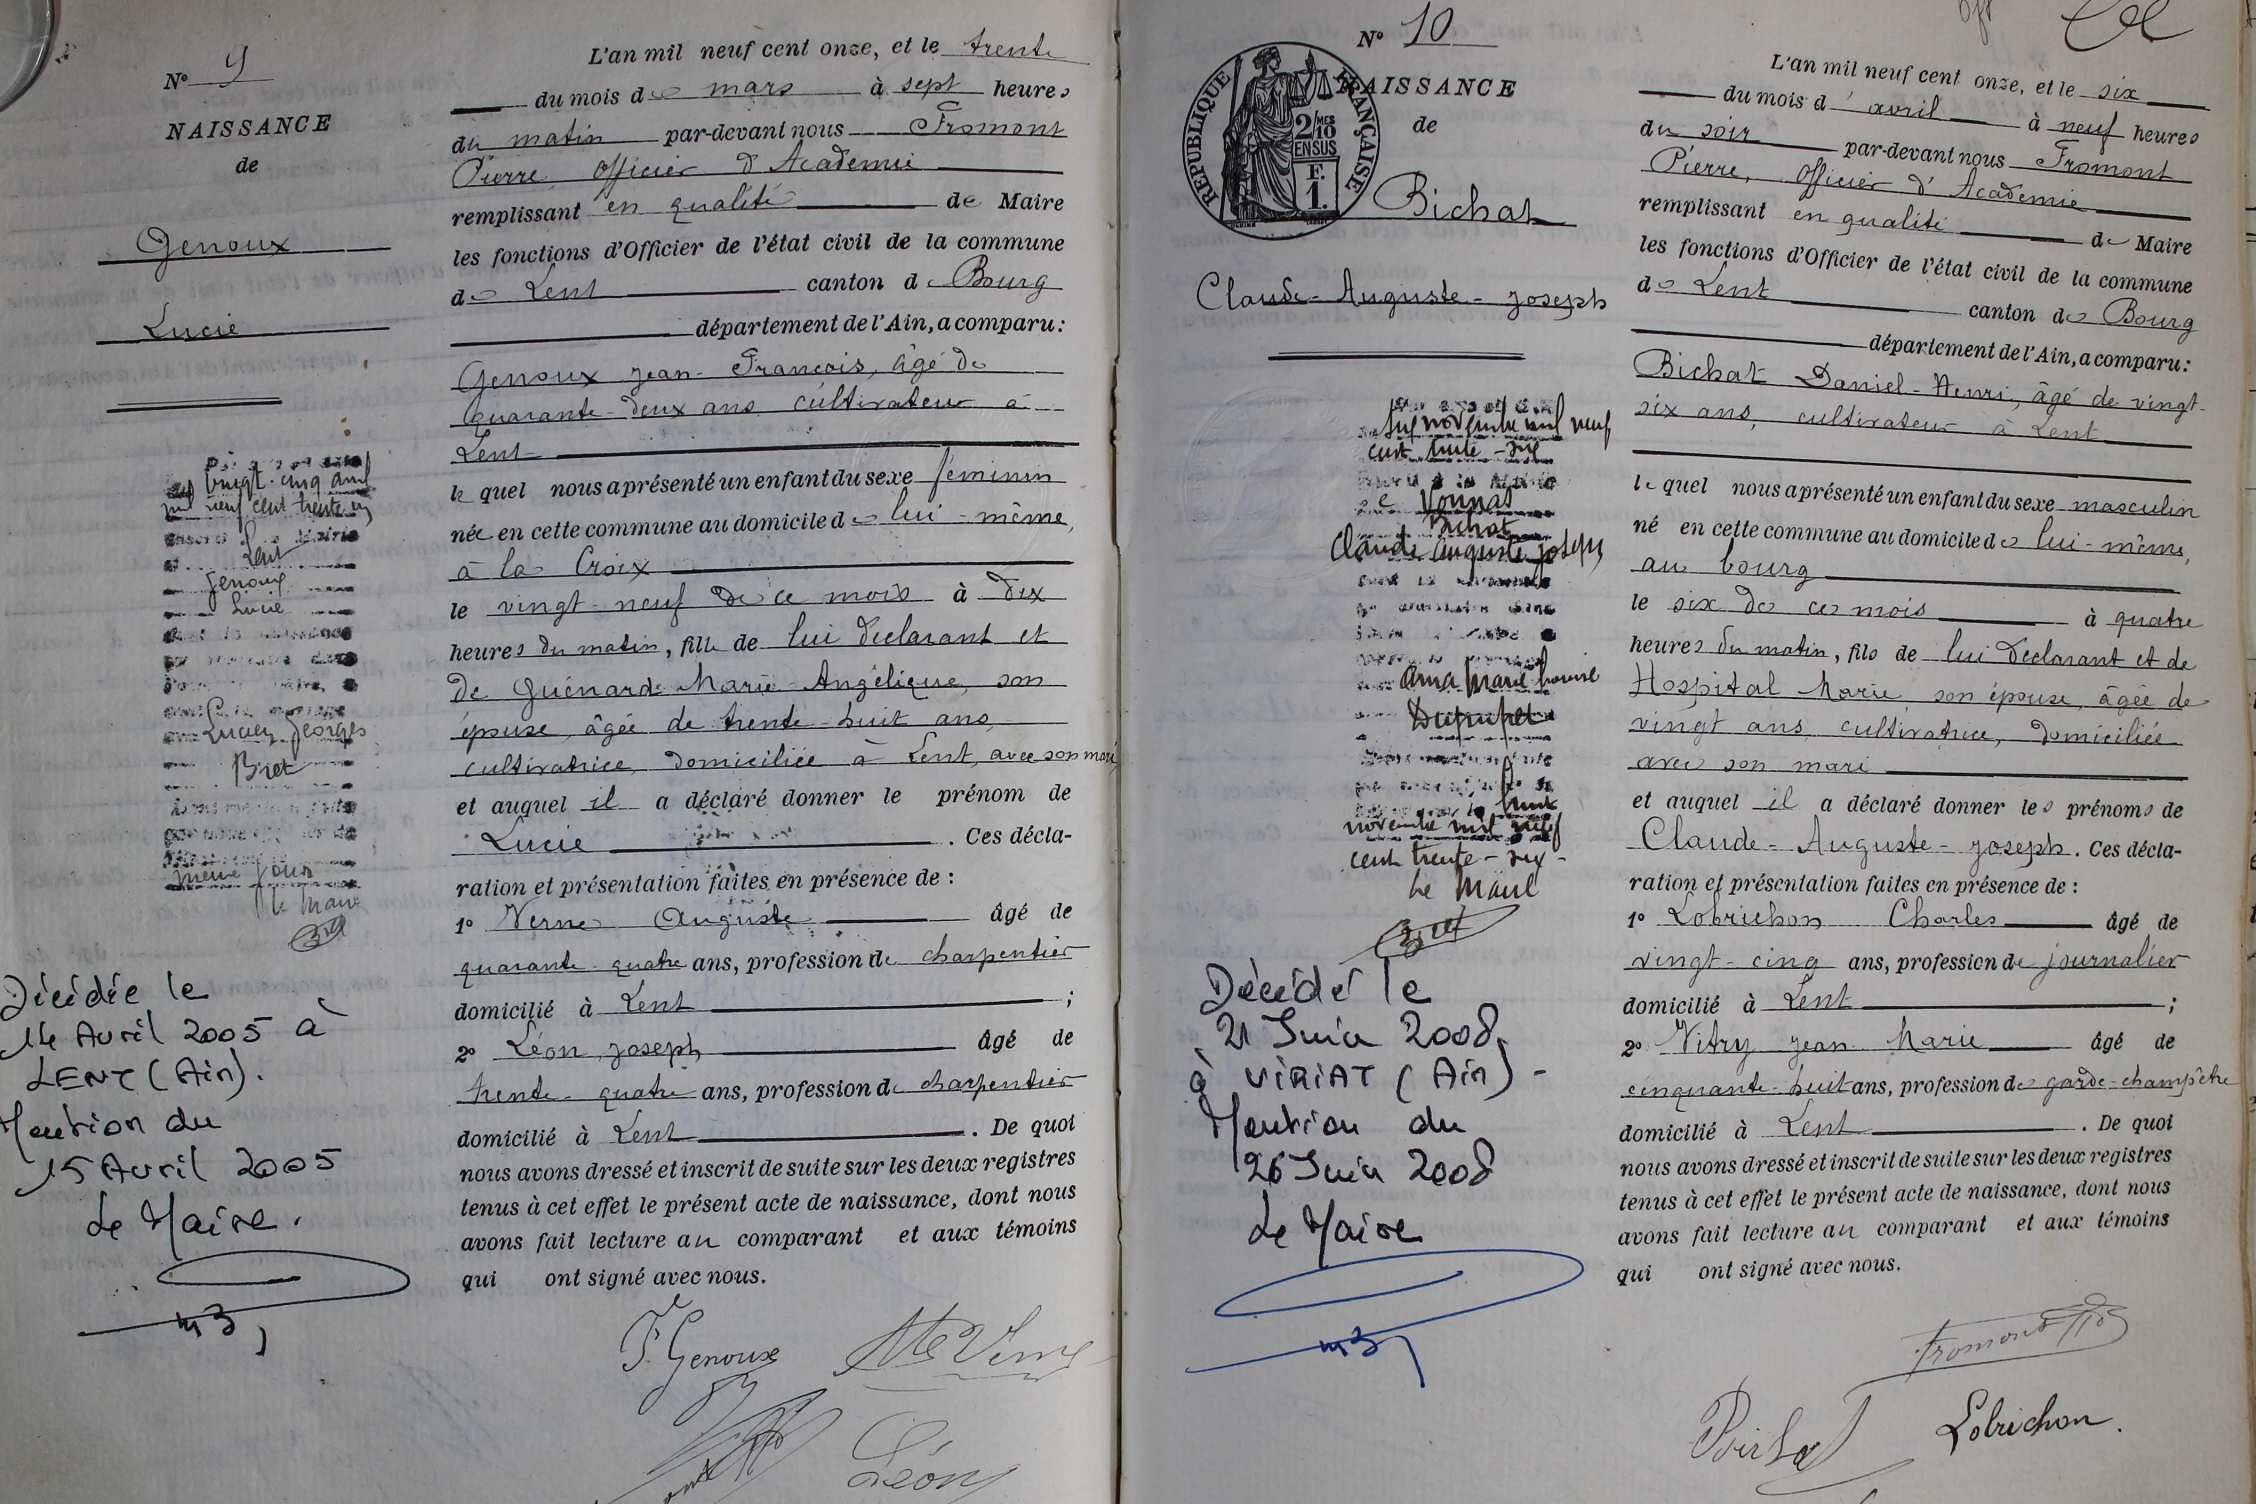 N° 9
NAISSANCE
de
Genoux
Lucie
vingt-cinq avril
mil neuf cent trente
Lent
Genoux
Lucie
Lucien Georges
Bret
même jour
Le Maire
Décédée le
14 Avril 2005 à
LENT (Ain).
Mention du
15 Avril 2005
Le Maire.
L'an mil neuf cent onze, et le trente
du mois de mars à sept heures
du matin par-devant nous Fromont
Pierre, officier d'Academie
remplissant en qualité de Maire
les fonctions d'Officier de l'état civil de la commune
de Lent canton de Bourg
département de l'Ain, a comparu:
Genoux Jean-François, âgé de
quarante-deux ans cultivateur à
Lent
lequel nous a présenté un enfant du sexe féminin
née en cette commune au domicile de lui-même,
à la Croix
le vingt-neuf de ce mois à dix
heures du matin, fille de lui déclarant et
de Guénard Marie-Angélique, son
épouse, âgée de trente-huit ans,
cultivatrice, domiciliée à Lent, avec son mari
et auquel il a déclaré donner le prénom de
Lucie. Ces décla-
ration et présentation faites en présence de :
1° Verne Auguste âgé de
quarante-quatre ans, profession de charpentier
domicilié à Lent ;
2° Léon Joseph âgé de
trente-quatre ans, profession de charpentier
domicilié à Lent. De quoi
nous avons dressé et inscrit de suite sur les deux registres
tenus à cet effet le présent acte de naissance, dont nous
avons fait lecture au comparant et aux témoins
qui ont signé avec nous.
F. Genoux
Léon
N° 10
NAISSANCE
de
RÉPUBLIQUE FRANÇAISE
2/10 MES
EN SUS
F.
1.
Bichat
Claude-Auguste-Joseph
novembre mil neuf
cent trente-six
Vonnas
Bichat
Claude Auguste Joseph
Anna Marie Louise
novembre mil neuf
cent trente-six
Le Maire
Décédé le
21 Juin 2008
à VIRIAT (Ain)-
Mention du
26 Juin 2008
Le Maire
L'an mil neuf cent onze, et le six
du mois d'avril à neuf heures
du soir par-devant nous Fromont
Pierre, officier d'Academie
remplissant en qualité de Maire
les fonctions d'Officier de l'état civil de la commune
de Lent canton de Bourg
département de l'Ain, a comparu:
Bichat Daniel-Henri, âgé de vingt-
six ans, cultivateur à Lent
lequel nous a présenté un enfant du sexe masculin
né en cette commune au domicile de lui-même,
au bourg
le six de ce mois à quatre
heures du matin, fils de lui déclarant et de
Hospital Marie, son épouse, âgée de
vingt ans, cultivatrice, domiciliée
avec son mari
et auquel il a déclaré donner les prénoms de
Claude-Auguste-Joseph. Ces décla-
ration et présentation faites en présence de :
1° Lobrichon Charles âgé de
vingt-cinq ans, profession de journalier
domicilié à Lent ;
2° Vitry Jean Marie âgé de
cinquante-huit ans, profession de garde-champêtre
domicilié à Lent. De quoi
nous avons dressé et inscrit de suite sur les deux registres
tenus à cet effet le présent acte de naissance, dont nous
avons fait lecture au comparant et aux témoins
qui ont signé avec nous.
Fromont
Lobrichon.